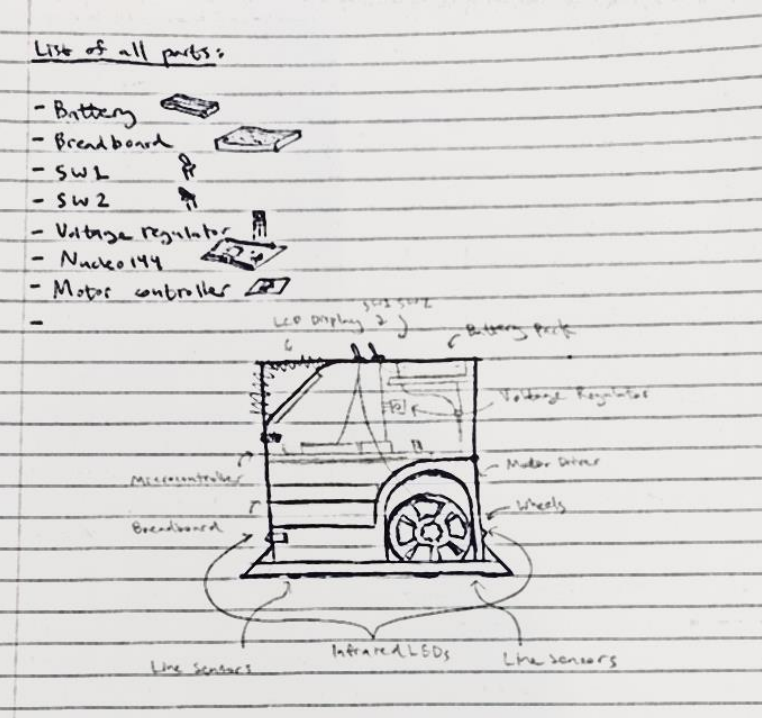 List of all parts:
- Battery
- Breadboard
- SW1
- SW2
- Voltage regulator
- Nucleo 144
- Motor controller
-
SW1 SW2
LCD Display
Battery Pack
Voltage Regulator
Microcontroller
Motor Driver
Wheels
Breadboard
Infrared LEDs
Line Sensors
Line Sensors